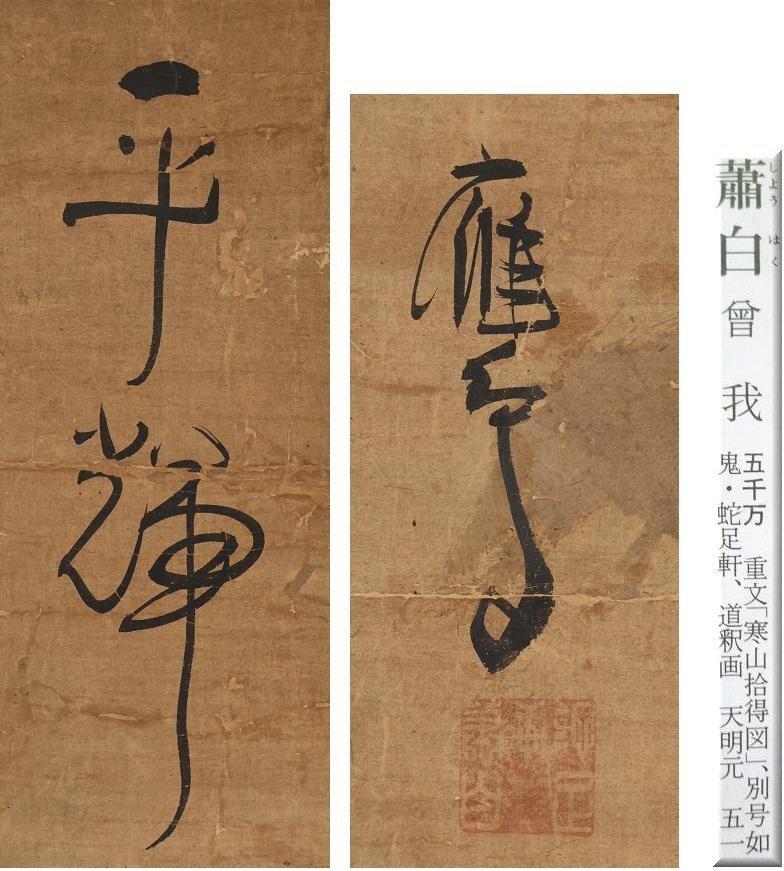 平輝
鷹
蕭白 曾我
しようはく
五千万 重文「寒山拾得図」、別号如
鬼・蛇足軒、道釈画 天明元 五一